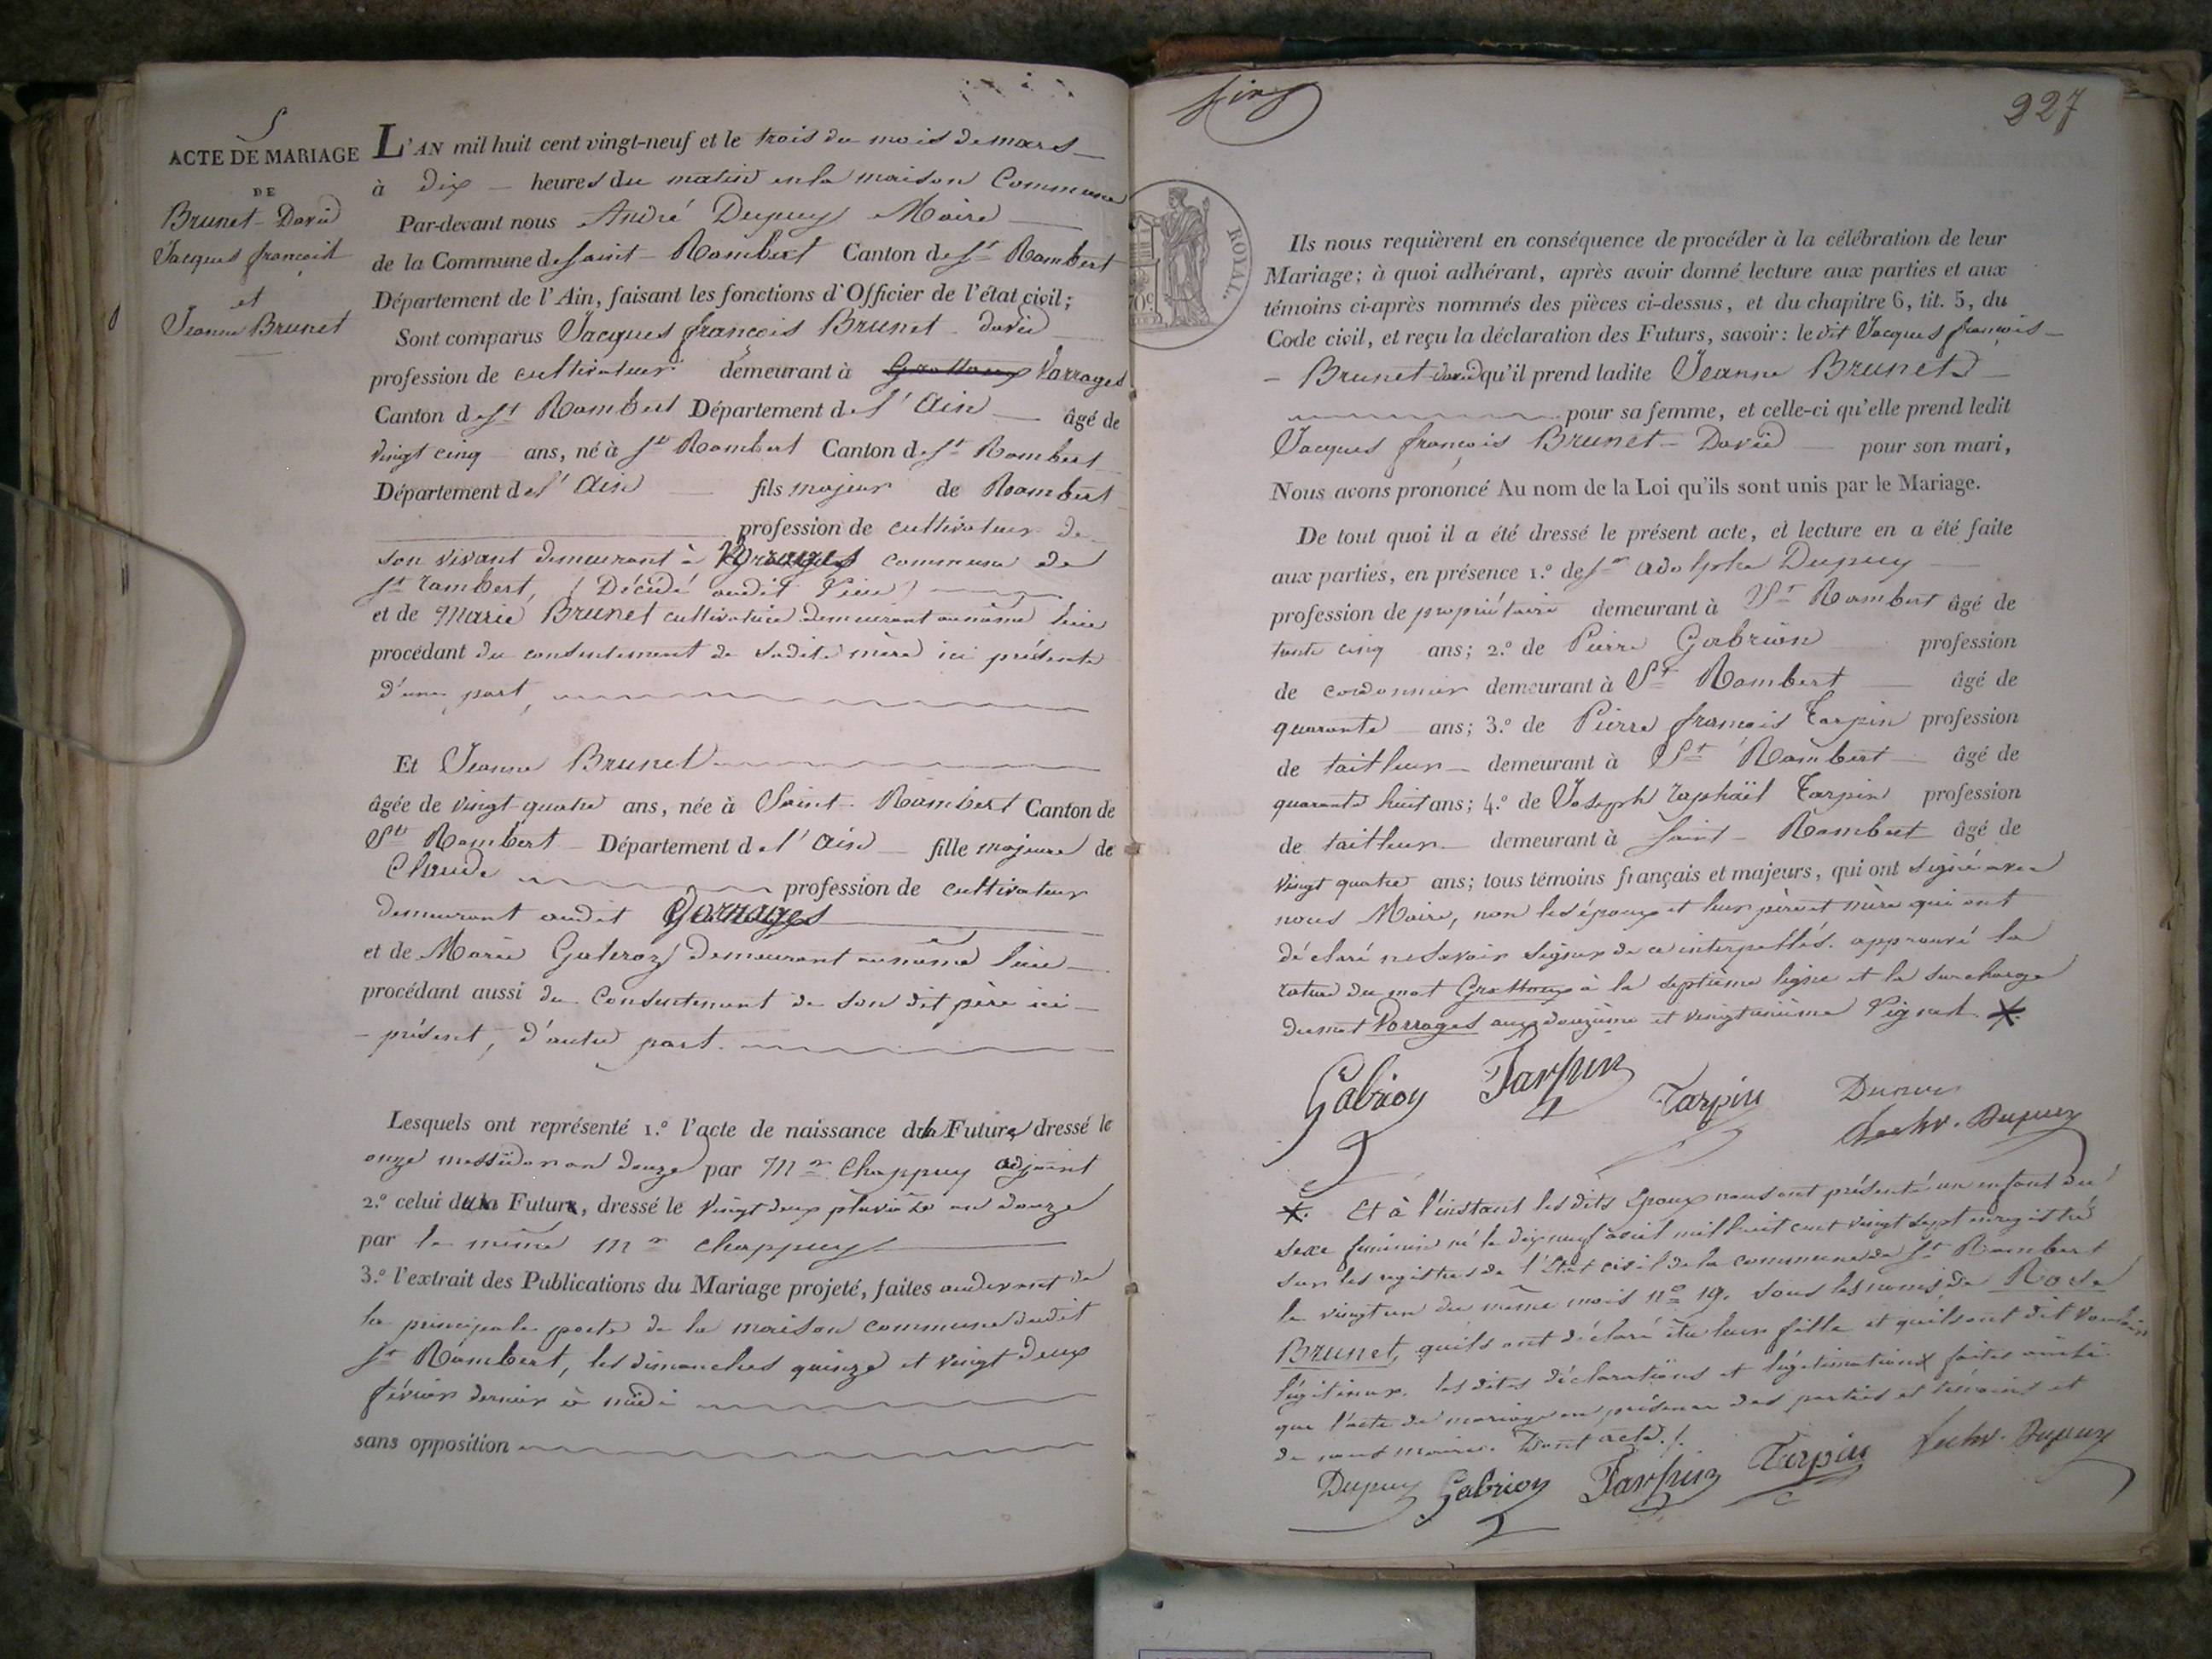 5
ACTE DE MARIAGE
DE
Brunet-David
Jacques françois
et
Jeanne Brunet
L'AN mil huit cent vingt-neuf et le trois du mois de mars
à dix heures du matin en la maison Commune
Par-devant nous André Dupuy Maire
de la Commune de saint-Rambert Canton de St Rambert
Département de l'Ain, faisant les fonctions d'Officier de l'état civil;
Sont comparus Jacques françois Brunet-david
profession de cultivateur demeurant à Grattoux Varrages
Canton de St Rambert Département de l'Ain âgé de
vingt cinq ans, né à St Rambert Canton de St Rambert
Département de l'Ain fils majeur de Rambert
profession de cultivateur de
son vivant demeurant à Varrages commune de
St rambert, (Décédé audit lieu)
et de Marie Brunet cultivatrice demeurant au même lieu
procédant du consentement de sadite mère ici présente
d'une part,
Et Jeanne Brunet
âgée de vingt-quatre ans, née à Saint-Rambert Canton de
St Rambert Département de l'Ain fille majeure de
Claude profession de cultivateur
demeurant audit Varrages
et de Marie Galeroz demeurant au même lieu
procédant aussi du Consentement de son dit père ici
présent, d'autre part.
Lesquels ont représenté 1.º l'acte de naissance de la Future dressé le
onze messidor an douze par Mr Chappuy adjoint
2.º celui du Futur, dressé le vingt deux pluviôse an douze
par le même Mr Chappuy
3.º l'extrait des Publications du Mariage projeté, faites audevant de
la principale porte de la maison commune dudit
St Rambert, les dimanches quinze et vingt deux
février dernier à midi
sans opposition
cinq
227
ROYAL.
70c
Ils nous requièrent en conséquence de procéder à la célébration de leur
Mariage; à quoi adhérant, après avoir donné lecture aux parties et aux
témoins ci-après nommés des pièces ci-dessus, et du chapitre 6, tit. 5, du
Code civil, et reçu la déclaration des Futurs, savoir: le dit Jacques françois
Brunet david qu'il prend ladite Jeanne Brunet
pour sa femme, et celle-ci qu'elle prend ledit
Jacques françois Brunet-David pour son mari,
Nous avons prononcé Au nom de la Loi qu'ils sont unis par le Mariage.
De tout quoi il a été dressé le présent acte, et lecture en a été faite
aux parties, en présence 1.º de Sr adolphe Dupuy
profession de propriétaire demeurant à St Rambert âgé de
trente cinq ans; 2.º de Pierre Gabrion profession
de cordonnier demeurant à St Rambert âgé de
quarante ans; 3.º de Pierre françois Tarpin profession
de tailleur demeurant à St Rambert âgé de
quarante huit ans; 4.º de Joseph raphaël Tarpin profession
de tailleur demeurant à saint-Rambert âgé de
vingt quatre ans; tous témoins français et majeurs, qui ont signé avec
nous Maire, non les époux et leur père et mère qui ont
déclaré ne savoir signer de ce interpellés. approuvé la
rature du mot Grattoux à la septième ligne et la surcharge
du mot Varrages aux douzième et vingtunième lignes. *.
Gabrion Tarpin Tarpin Dupuy
Dupuy
*. Et à l'instant les dits époux nous ont présenté un enfant du
sexe féminin né le dix neuf avril mil huit cent vingt sept enregistré
sur les registres de l'état civil de la commune de St Rambert
le vingt un du même mois nº 19. sous les noms de Rose
Brunet, qu'ils ont déclaré être leur fille et qu'ils ont dit vouloir
légitimer. les dites déclarations et légitimations faites ainsi
que l'acte de mariage en présence des parties et témoins et
de nous maire. Dont acte./.
Dupuy Gabrion Tarpin Tarpin Dupuy